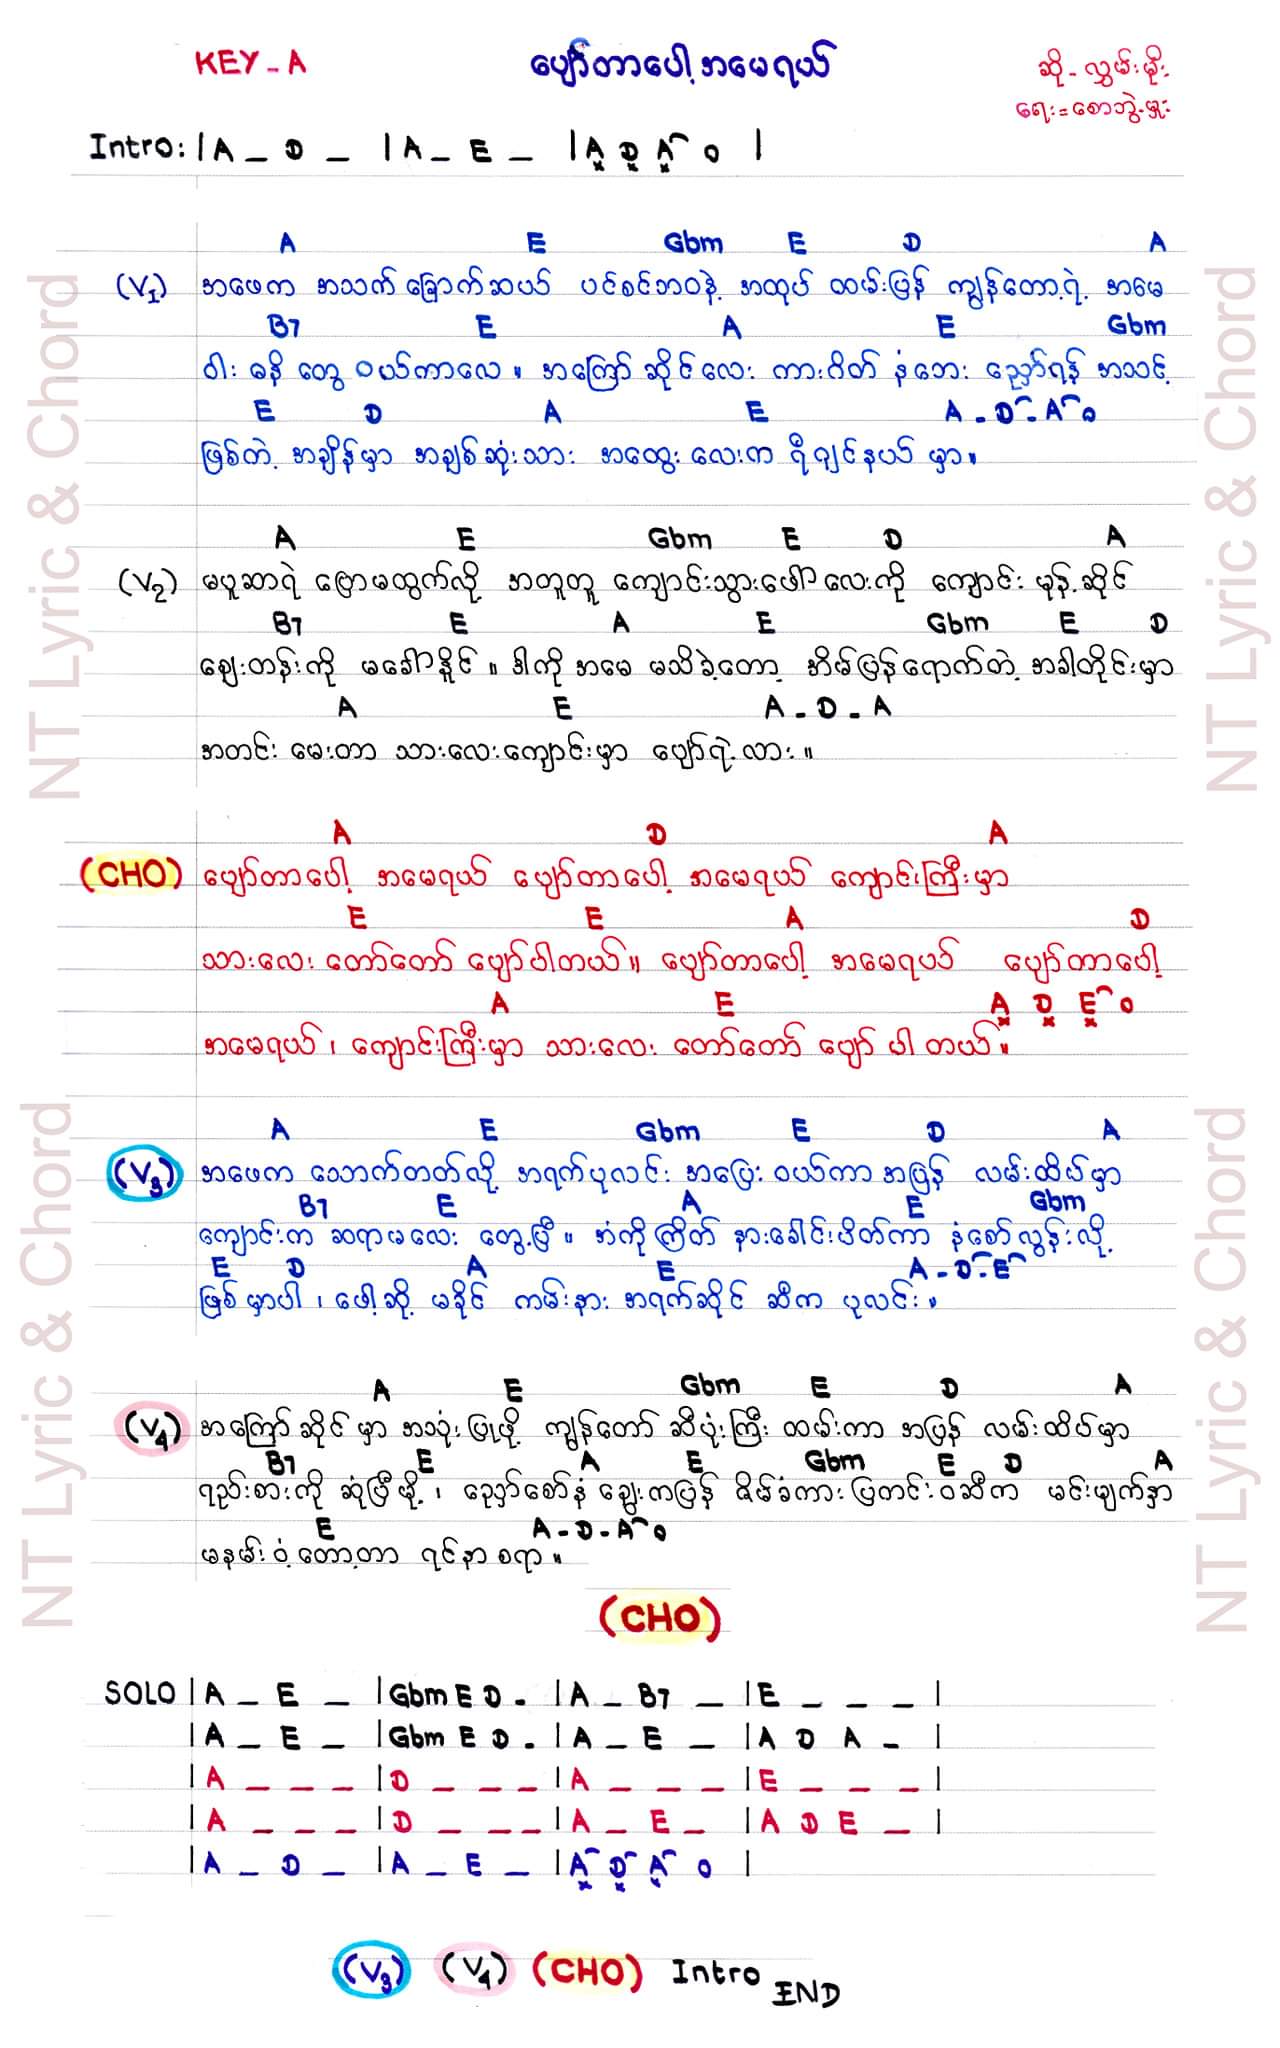 KEY - A
ပျော်တာပေါ့အမေရယ်
ဆို - လွှမ်းမိုး
ရေး = စောဘွဲ့မှူး
Intro: | A _ D _ | A _ E _ | A D A o |
A E Gbm E D A
(V1) အဖေက အသက်ခြောက်ဆယ် ပင်စင်ဘဝနဲ့ အထုပ် ထမ်းပြန် ကျွန်တော့်ရဲ့ အမေ
B7 E A E Gbm
ဝါး ဓနိ တွေ ဝယ်ကာလေ ။ အကြော် ဆိုင်လေး ကားဂိတ် နံဘေး ညှော်ရနံ့ အသင့်
E D A E A - D - A o
ဖြစ်တဲ့ အချိန်မှာ အချစ်ဆုံးသား အထွေး လေးက ရီဂျင်နယ် မှာ။
A E Gbm E D A
(V2) မပူဆာရဲ ဗြောမထွက်လို့ အတူတူ ကျောင်းသွားဖေါ် လေးကို ကျောင်း မုန့်ဆိုင်
B7 E A E Gbm E D
ဈေးတန်းကို မခေါ်နိုင် ။ ဒါကို အမေ မသိခဲ့တော့ အိမ်ပြန်ရောက်တဲ့ အခါတိုင်းမှာ
A E A - D - A
အတင်း မေးတာ သားလေးကျောင်းမှာ ပျော်ရဲ့လား ။
A D A
(CHO) ပျော်တာပေါ့ အမေရယ် ပျော်တာပေါ့ အမေရယ် ကျောင်းကြီးမှာ
E E A D
သားလေး တော်တော် ပျော်ပါတယ်။ ပျော်တာပေါ့ အမေရယ် ပျော်တာပေါ့
A E A D E o
အမေရယ် ၊ ကျောင်းကြီးမှာ သားလေး တော်တော် ပျော် ပါ တယ်။
A E Gbm E D A
(V3) အဖေက သောက်တတ်လို့ အရက်ပုလင်း အပြေး ဝယ်ကာ အပြန် လမ်းထိပ်မှာ
B7 E A E Gbm
ကျောင်းက ဆရာမလေး တွေ့ပြီ ။ အံကို ကြိတ် နားခေါင်းပိတ်ကာ နံစော်လွန်းလို့
E D A E A - D - E
ဖြစ် မှာပါ ၊ ဖေါ့ဆို့ မခိုင် ကမ်းနား အရက်ဆိုင် ဆီက ပုလင်း။
A E Gbm E D A
(V4) အကြော် ဆိုင် မှာ အသုံး ပြုဖို့ ကျွန်တော် ဆီပုံးကြီး ထမ်းကာ အပြန် လမ်းထိပ်မှာ
B7 E A E Gbm E D A
ရည်းစားကို ဆုံပြီဖို့ ၊ ညှော်စော်နံ ချွေးကပြန် ဇိမ်ခံကား ပြတင်းဝဆီက မင်းမျက်နှာ
E A - D - A o
မနမ်းဝံ့တော့တာ ရင်နာစရာ ။
(CHO)
SOLO | A _ E _ | Gbm E D - | A _ B7 _ | E _ _ _ |
| A _ E _ | Gbm E D . | A _ E _ | A D A - |
| A _ _ _ | D _ _ _ | A _ _ _ | E _ _ _ |
| A _ _ _ | D _ _ _ | A _ E _ | A D E _ |
| A _ D _ | A _ E _ | A D A o |
(V3) (V4) (CHO) Intro END
NT Lyric & Chord
NT Lyric & Chord
NT Lyric & Chord
NT Lyric & Chord